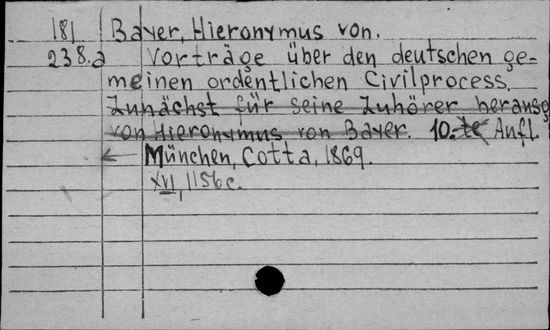 181 Bayer, Hieronymus von.
238.a Vorträge über den deutschen ge-
meinen ordentlichen Civilprocess.
Zunächst für seine Zuhörer herausg
von Hieronymus von Bayer. 10.te Aufl.
München, Cotta, 1869.
XVI, 1156 c.